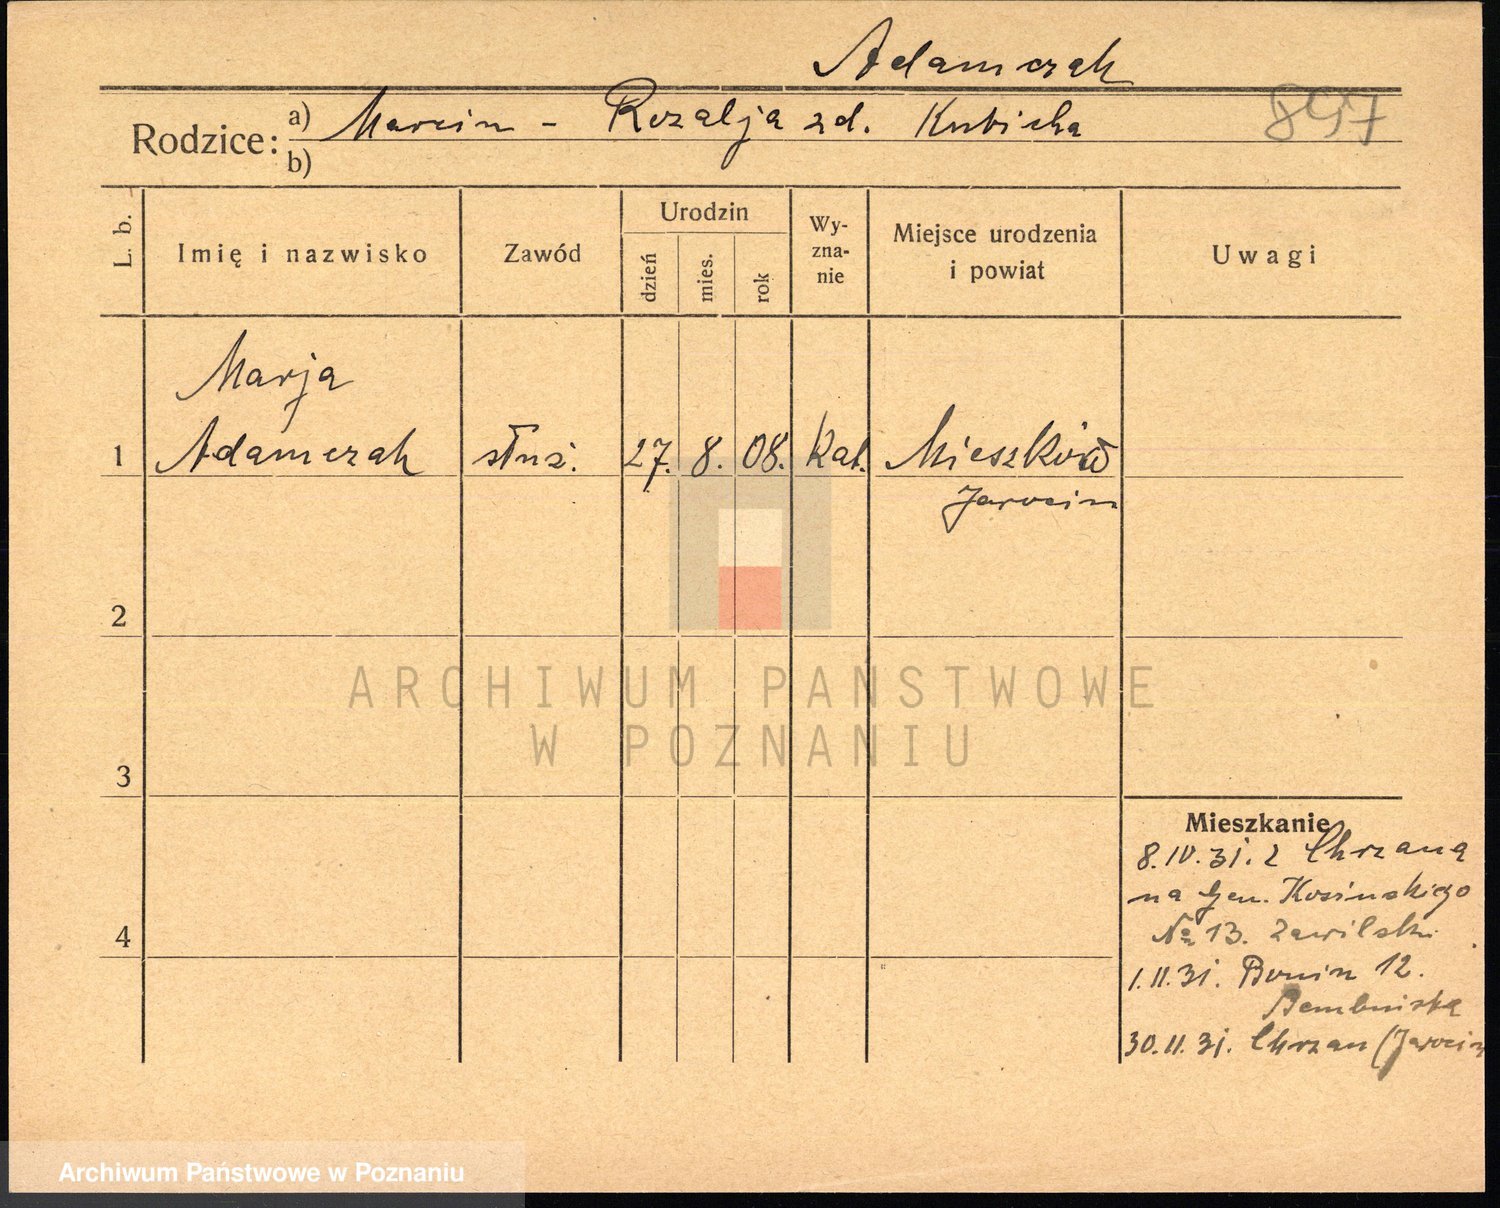 Adamczak
Rodzice: a) Marcin - Rozalja zd. Kubicka 897
b)
L. b. Imię i nazwisko Zawód Urodzin dzień mies. rok Wy-zna-nie Miejsce urodzenia i powiat Uwagi
Marja
1 Adamczak służ. 27. 8. 08. Kat. Mieszków
Jarocin
2
ARCHIWUM PAŃSTWOWE
W POZNANIU
3
Mieszkanie
8.IV.31. z Chrzana
na Gen. Kosinskiego
4 № 13. Zawilski
1.II.31. Bonin 12.
30.II.31. Chrzan (Jarocin
Archiwum Państwowe w Poznaniu